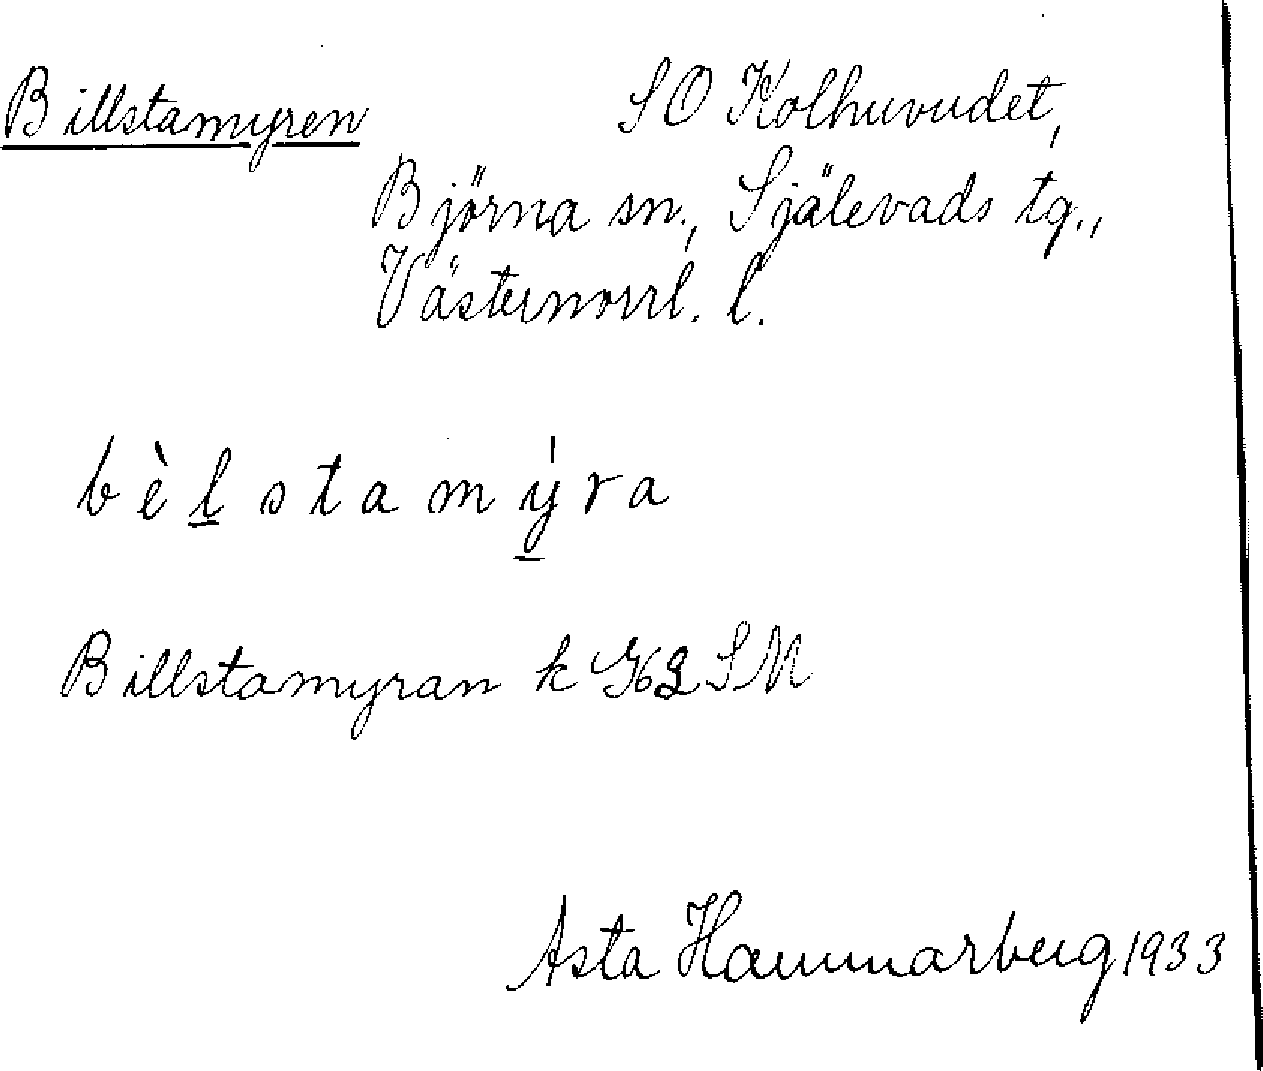 Billstamyren SO Kolhuvudet,
Björna sn., Själevads tg.,
Västernorrl. l.
bèl̲stamý̲ra
Billstamyran k
Asta Hammarberg 1933